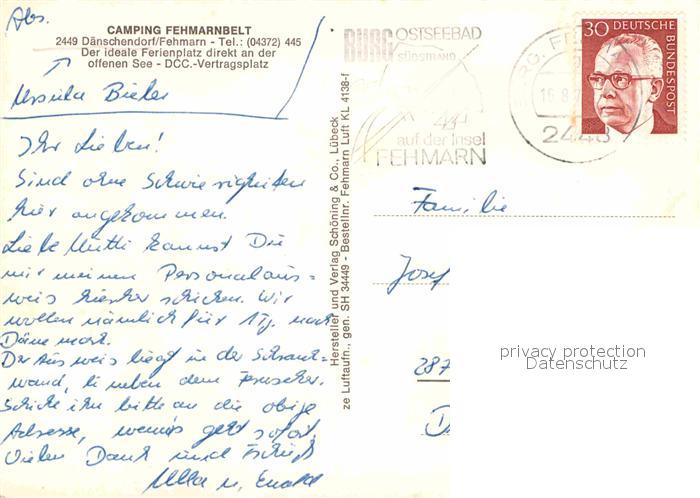 Abs.
CAMPING FEHMARNBELT
2449 Dänschendorf/Fehmarn - Tel.: (04372) 445
Der ideale Ferienplatz direkt an der
offenen See - DCC.-Vertragsplatz
Ursula
Ihr Lieben!
Sind ohne Schwierigkeiten
hier angekommen.
Liebe Mutti kannst Du
mir meinen Personalaus=
weis hierher schicken. Wir
wollen nämlich für 1 Tg. nach
Dänemark.
Der Ausweis liegt in der Schrank=
wand, li neben dem Fernseher.
Schicke ihn bitte an die obige
Adresse, wenns geht sofort.
Vielen Dank und Tschüß
Ulla u. Ewald
Hersteller und Verlag Schöning & Co., Lübeck
ze Luftaufn., gen. SH 34449 - Bestellnr. Fehmarn Luft KL 4138-f
BURG OSTSEEBAD
SÜDSTRAND
auf der Insel
FEHMARN
2448
30 DEUTSCHE
BUNDESPOST
Familie
Josef
287
privacy protection
Datenschutz